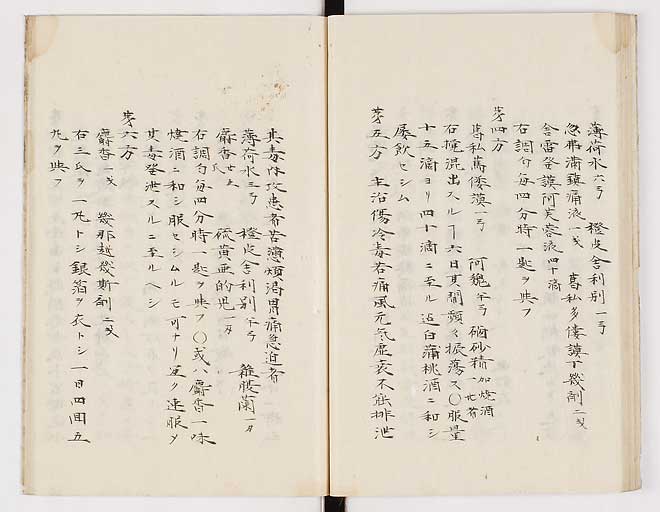 薄荷水六弓 橙皮舎利別一弓
忽弗満鎮痛液一戔 葛私多僂謨丁幾剤二戔
舎電登謨阿芙蓉液四十滴
右調勻毎四分時一匙ヲ與フ
第四方
葛私 一弓 阿魏半弓 硇砂精加焼酒
右 混出スルヿ六日其間頻々振蕩ス〇服量
十五滴ヨリ四十滴ニ至ル迠白蒲桃酒ニ和シ
屡飲セシム
第五方 主治傷冷毒若痛風元氣虚衰不能排泄
其毒内攻患者苦懣煩渇胃痛急迫者
薄荷水三弓 橙皮舎利別半弓
麝香 硫黄亜的児一刄
右調勻毎四分時一匙ヲ與フ〇或ハ麝香一味
焼酒ニ和シ服セシムルモ可ナリ 速服メ
其毒發泄スルニ至ルヘシ
第六方
麝香一戔 幾那越幾斯剤二戔
右三氏ヲ一丸トシ銀箔ヲ衣トシ一日四回五
丸ヲ與フ